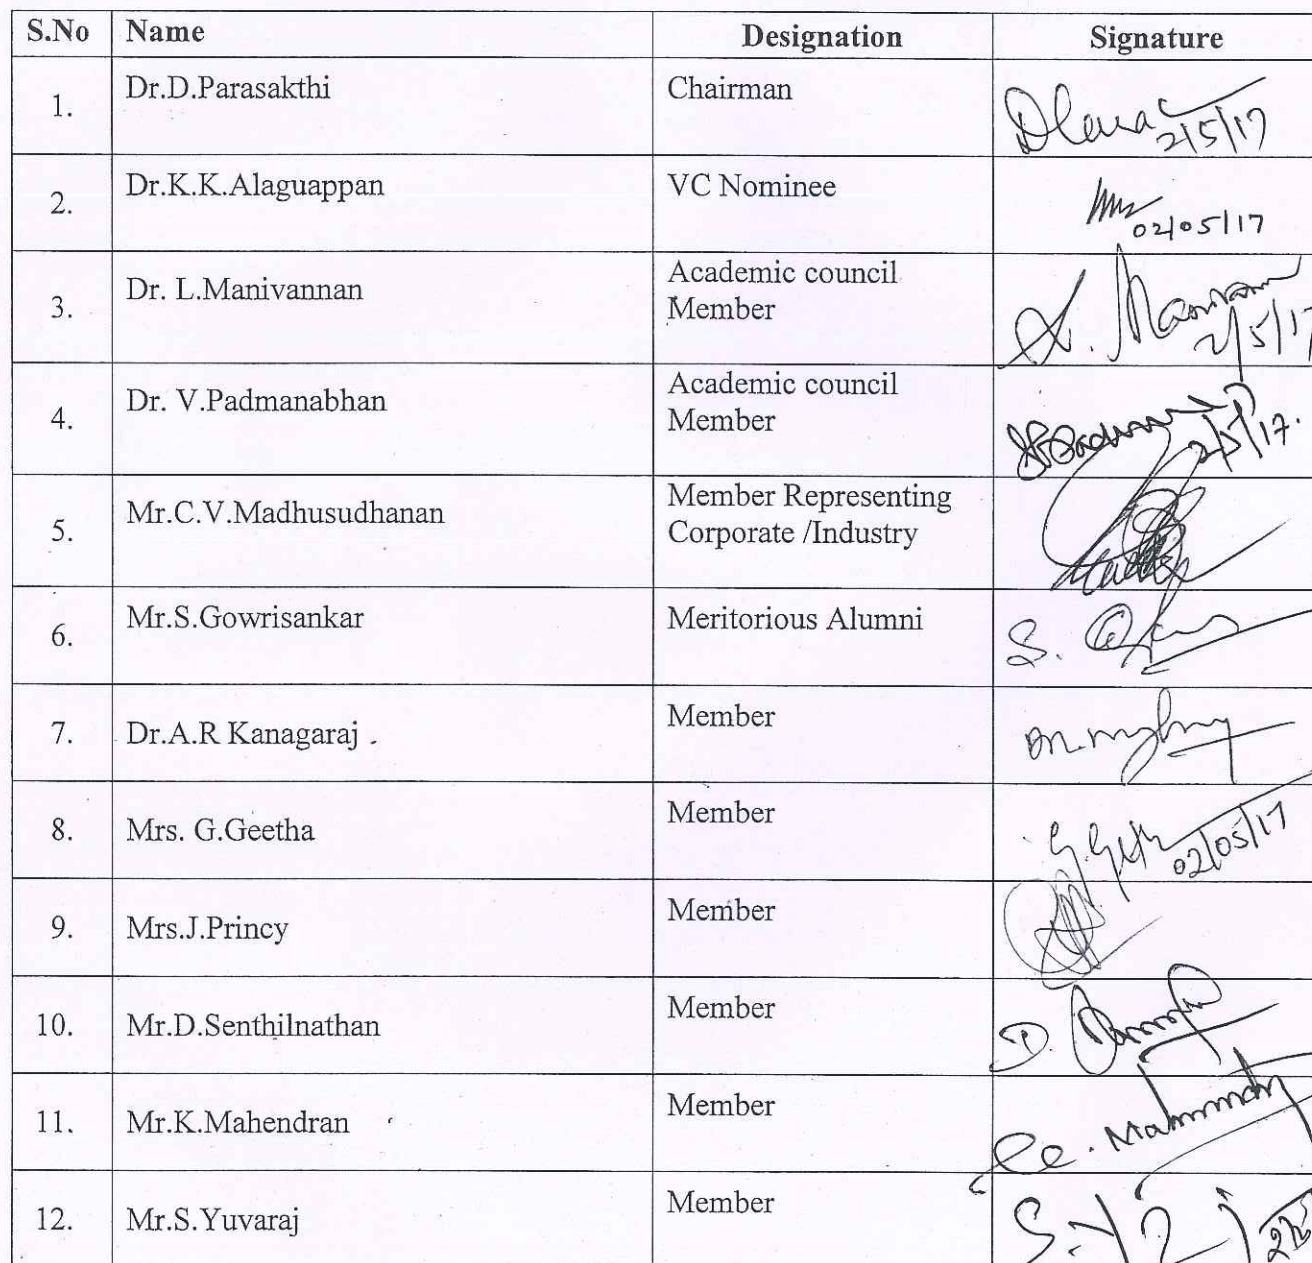 S.No Name Designation Signature
1. Dr.D.Parasakthi Chairman
2/5/17
2. Dr.K.K.Alaguappan VC Nominee
02/05/17
3. Dr. L.Manivannan Academic council
Member
2/5/17
4. Dr. V.Padmanabhan Academic council
Member
2/5/17.
5. Mr.C.V.Madhusudhanan Member Representing
Corporate /Industry
6. Mr.S.Gowrisankar Meritorious Alumni S.
7. Dr.A.R Kanagaraj Member
8. Mrs. G.Geetha Member
02/05/17
9. Mrs.J.Princy Member
10. Mr.D.Senthilnathan Member D.
11. Mr.K.Mahendran Member
12. Mr.S.Yuvaraj Member S.